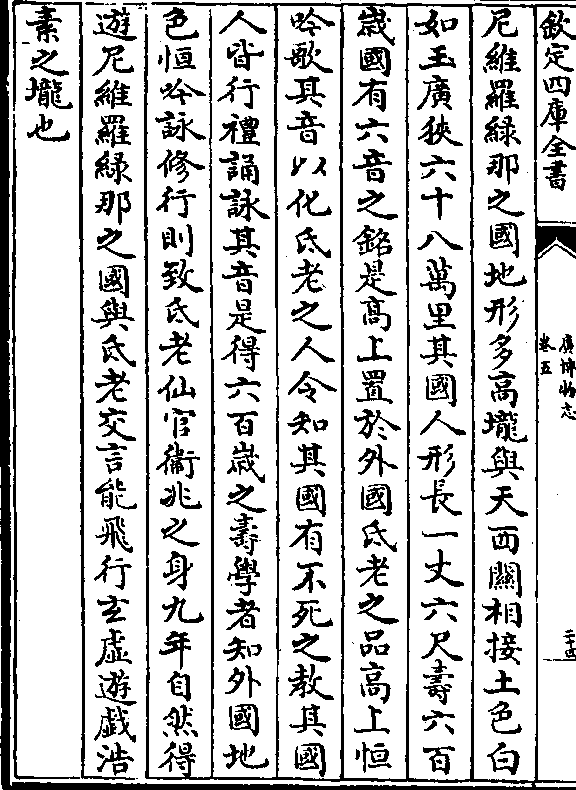 欽定四庫全書
廣博物志
卷五
二十四
尼維羅緑那之國地形多高壠與天西關相接土色白
如玉廣狹六十八萬里其國人形長一丈六尺壽六百
歲國有六音之銘是高上置於外國氐老之品高上恒
吟歌其音以化氐老之人令知其國有不死之教其國
人皆行禮誦詠其音是得六百歲之壽學者知外國地
色恒吟詠修行則致氐老仙官衞兆之身九年自然得
遊尼維羅緑那之國與氐老交言能飛行玄虚遊戯浩
素之壠也